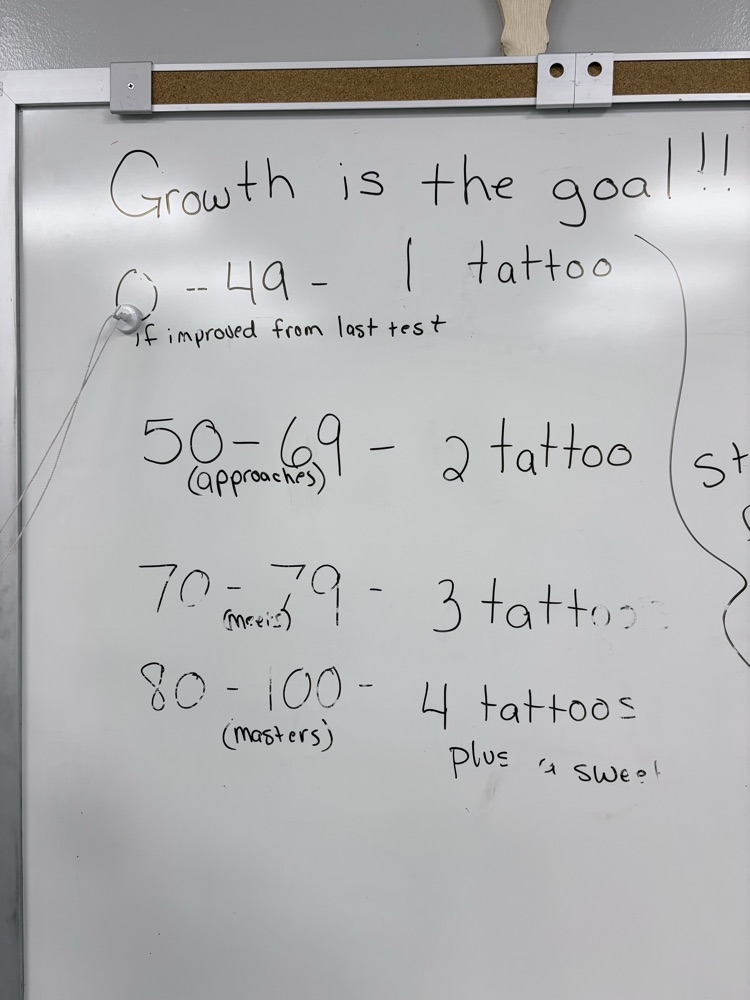 Growth is the goal!!!
0 -- 49 - 1 tattoo
if improved from last test
50 - 69 - 2 tattoo
(approaches)
70 - 79 - 3 tattoos
(meets)
80 - 100 - 4 tattoos
(masters)
plus a sweet